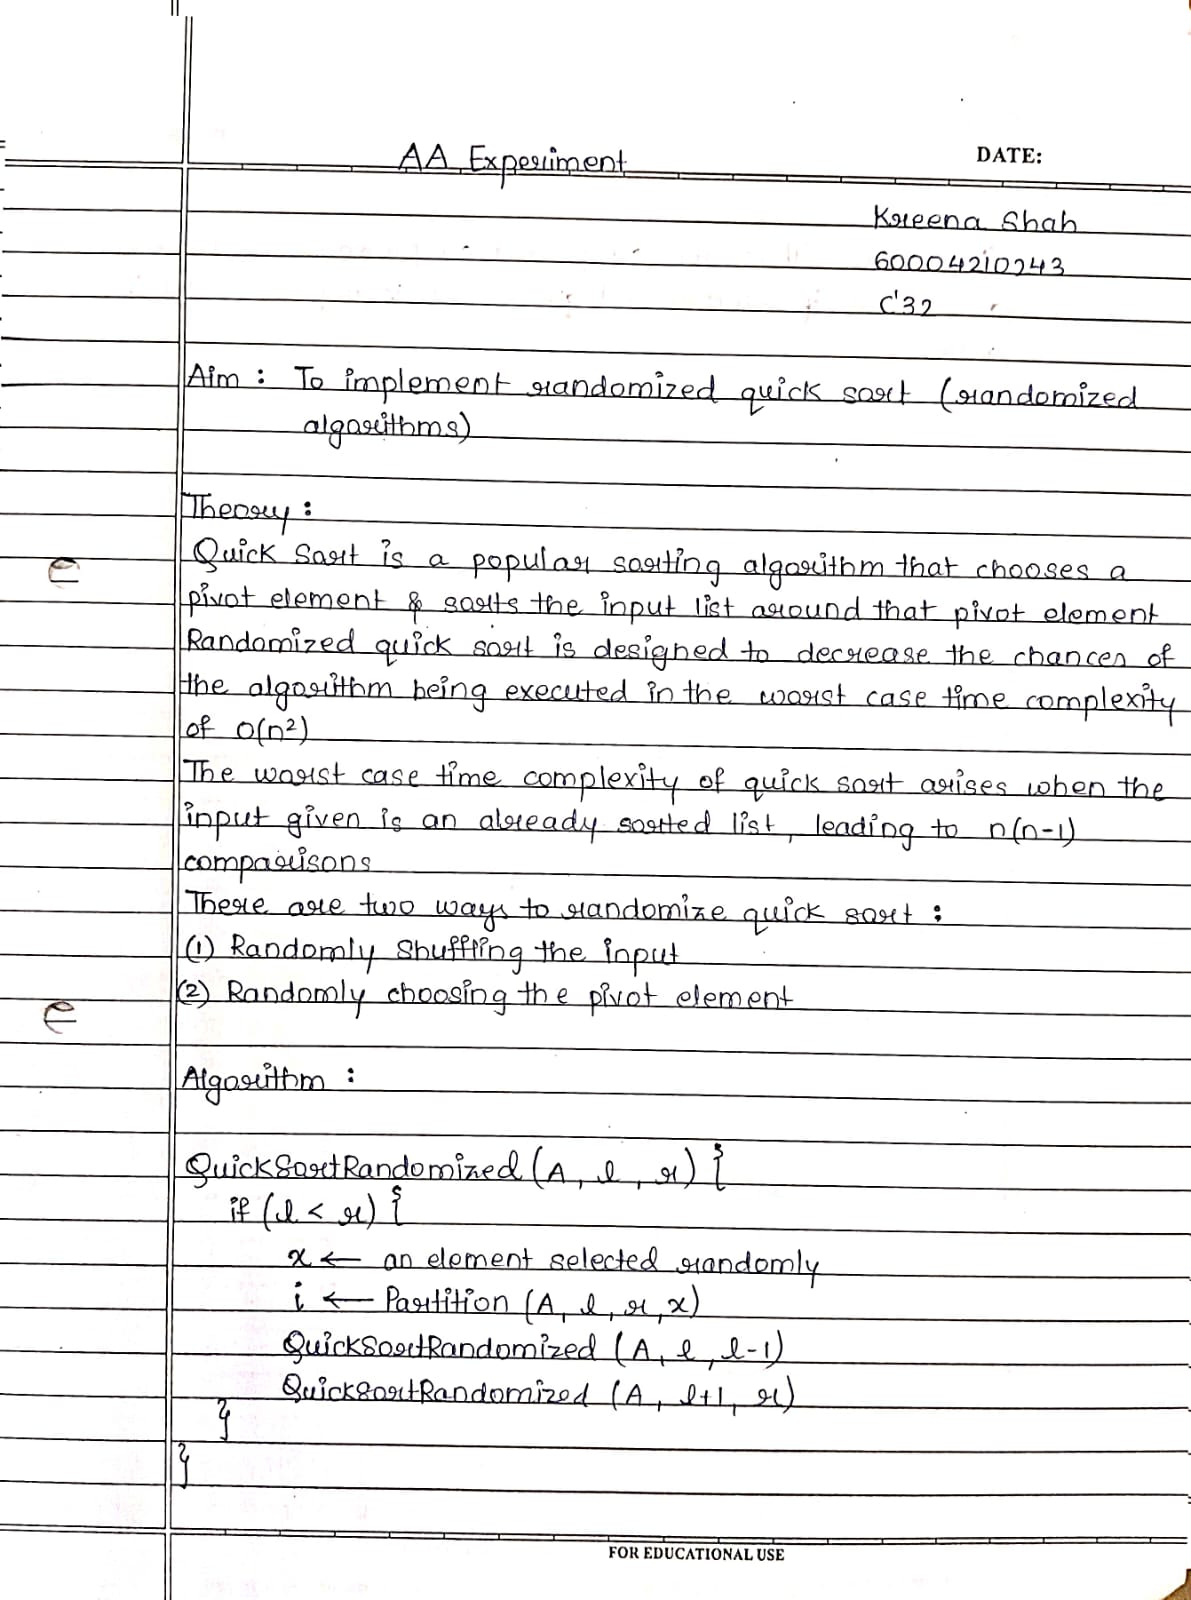 AA Experiment
DATE:
Kreena Shah
60004210243
C'32
Aim : To implement randomized quick sort (randomized
algorithms)
Theory :
Quick Sort is a popular sorting algorithm that chooses a
pivot element & sorts the input list around that pivot element
Randomized quick sort is designed to decrease the chances of
the algorithm being executed in the worst case time complexity
of O(n²)
The worst case time complexity of quick sort arises when the
input given is an already sorted list, leading to n(n-1)
comparisons
There are two ways to randomize quick sort :
(1) Randomly Shuffling the input
(2) Randomly choosing the pivot element
Algorithm :
QuickSortRandomized (A, l, r) {
if (l < r) {
x ← an element selected randomly
i ← Partition (A, l, r, x)
QuickSortRandomized (A, l, l-1)
QuickSortRandomized (A, l+1, r)
}
}
FOR EDUCATIONAL USE